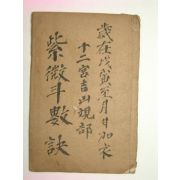 歲在戊寅至月日加衣
十二宮吉凶規部
紫微斗數訣